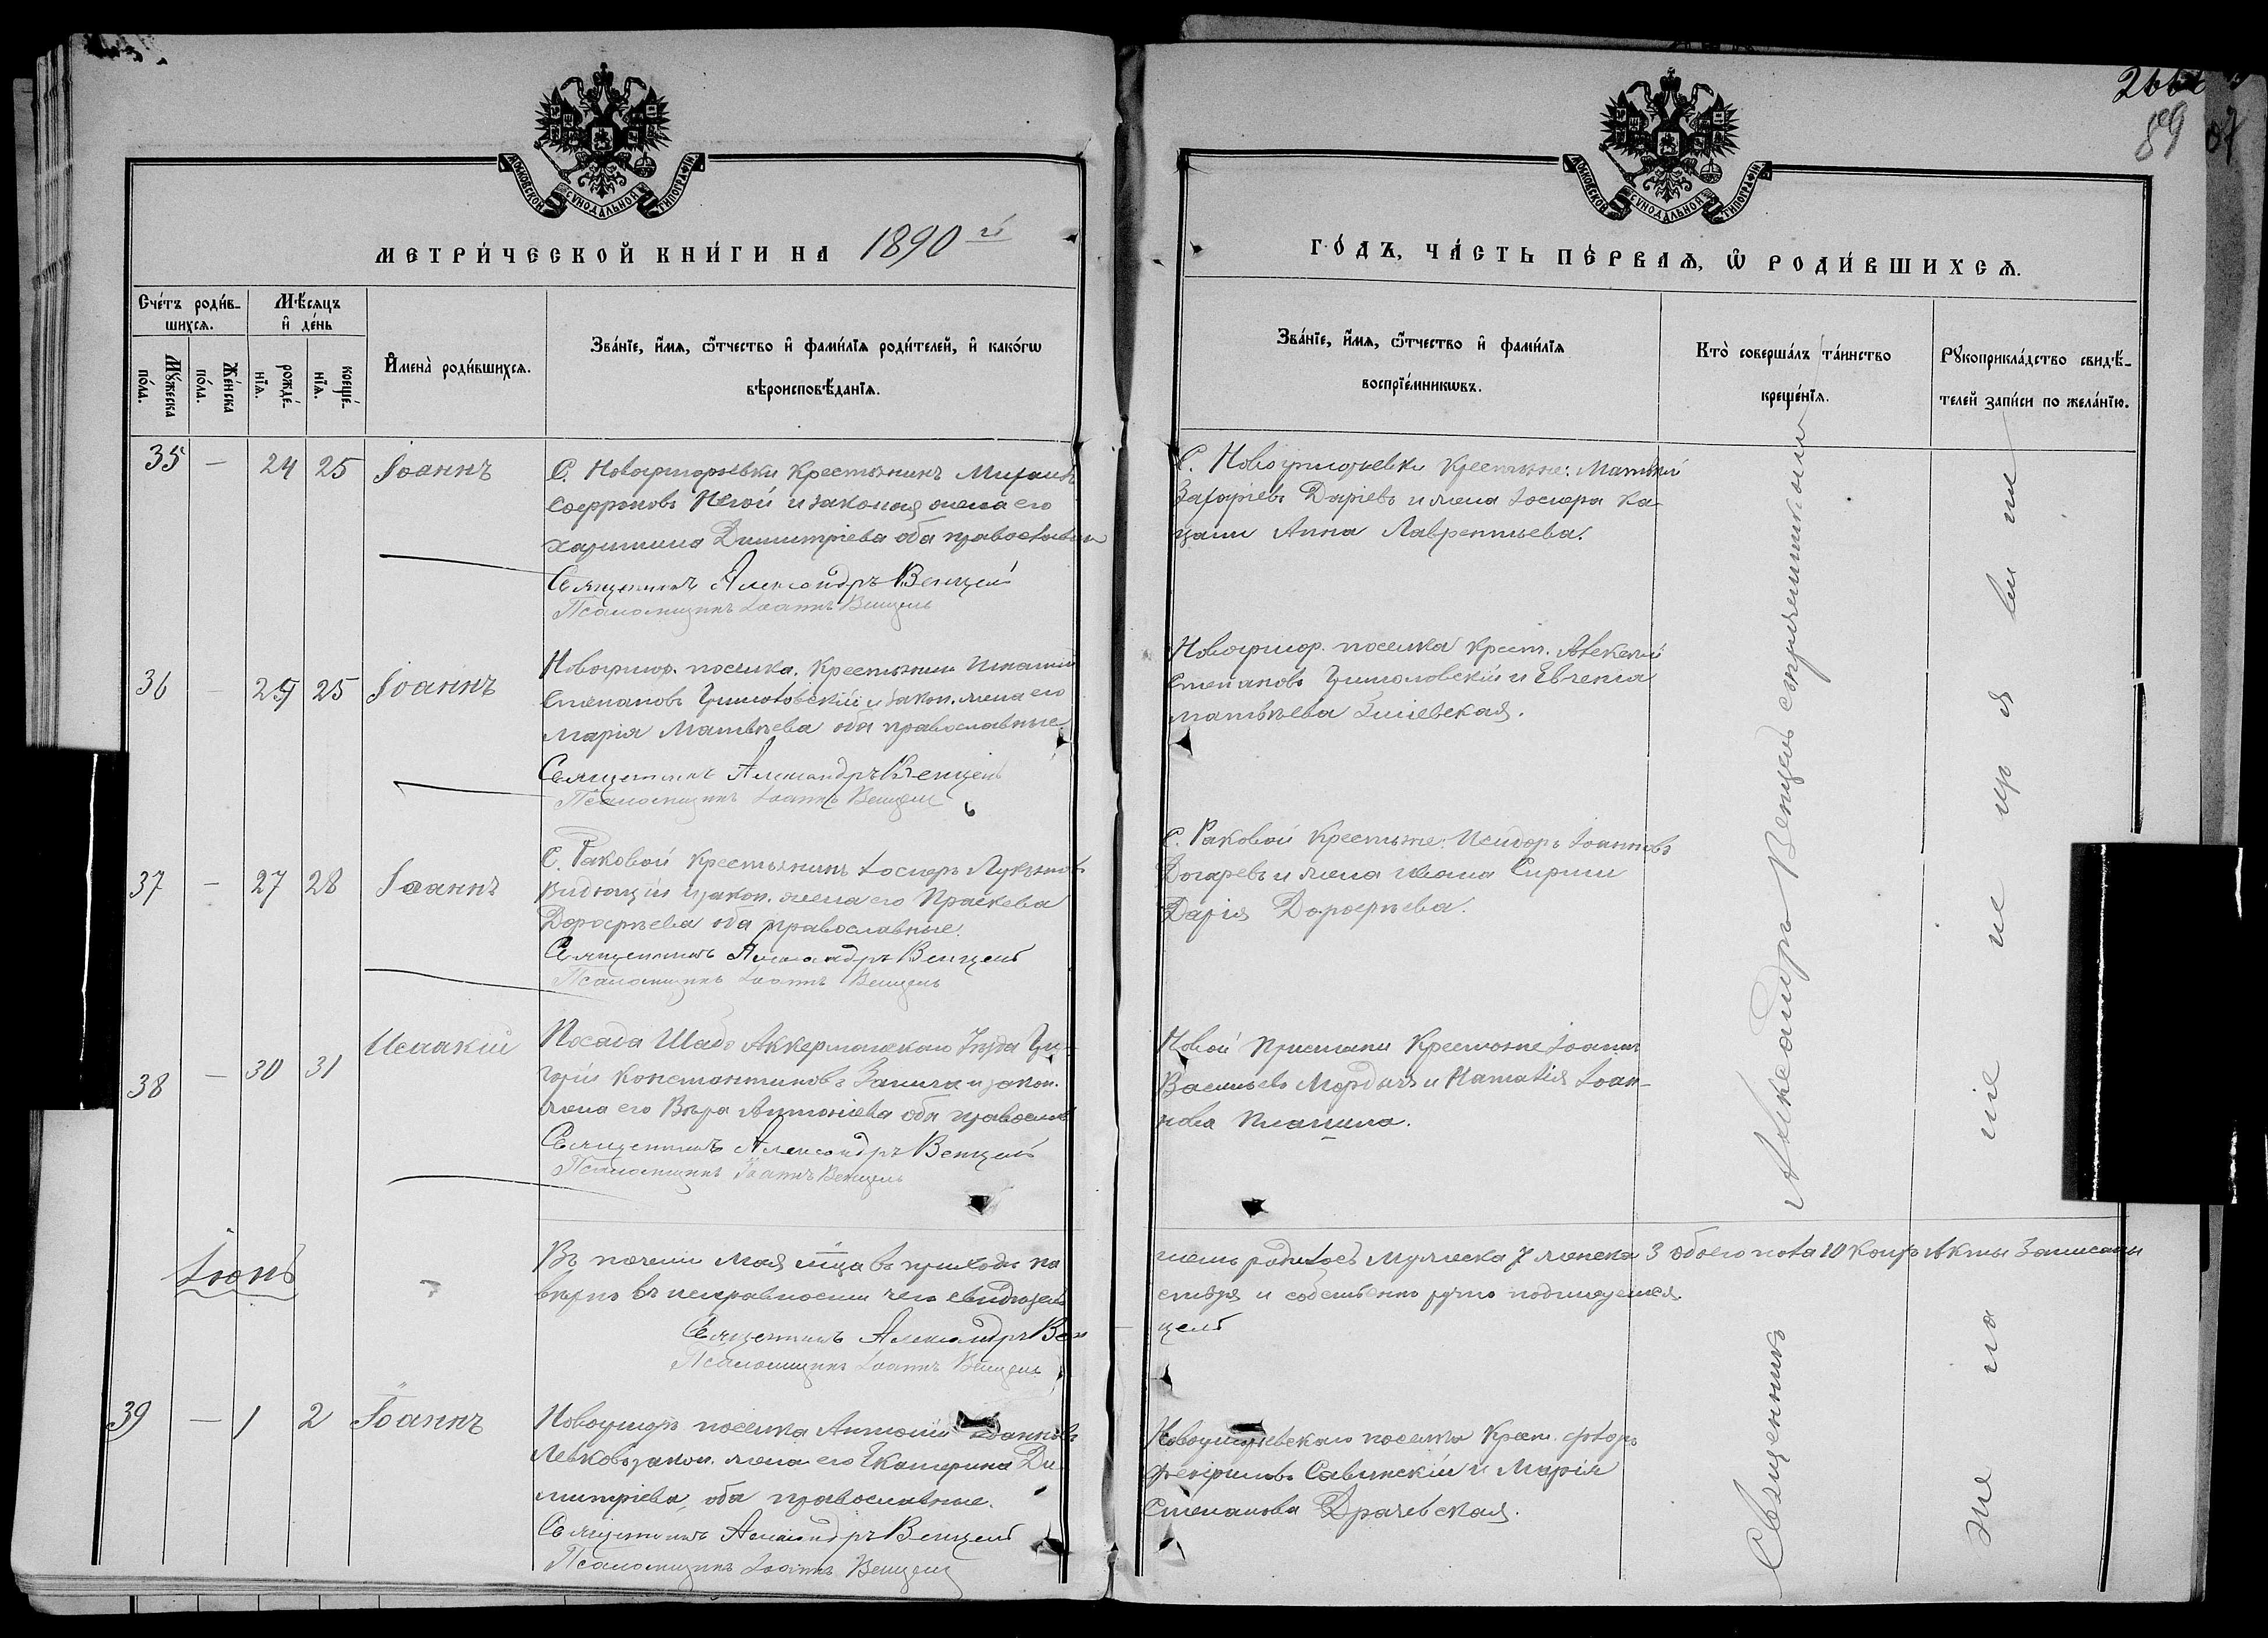 89
МОСКОВСКОЙ СѴНОДАЛЬНОЙ ТИПОГРАФІИ
МЕТРИ́ЧЕСКОЙ КНИ́ГИ НА 1890 й
Сче́тъ роди́в-
шихсѧ.
Мѣ́сѧцъ
и҆ де́нь
Мꙋ́жеска
по́ла.
Же́нска
по́ла.
рожде́-
нїѧ.
креще́-
нїѧ.
И҆мена̀ роди́вшихсѧ.
Зва́нїе, и҆́мѧ, ѻ҆́тчество и҆ фами́лїѧ роди́телей, и҆ како́гѡ
вѣроисповѣ́данїѧ.
35 — 24 25 Іоаннъ
С. Новогригорьевки Крестьянинъ Михаилъ
Софроновъ Негой и законая жена его
Харитина Димитріева оба православные
Священникъ Александръ Венцель
Псаломщикъ Іоаннъ Венцель
36 — 25 25 Іоаннъ
Новогригор. поселка. Крестьянинъ Игнатій
Степановъ и закон. жена его
Марія Матвѣева оба православные
Священникъ Александръ Венцель
Псаломщикъ Іоаннъ Венцель
37 — 27 28 Іоаннъ
С. Раковой Крестьянинъ Іосифъ Лукьяновъ
и закон. жена его Праскева
Дорофѣева оба православные.
Священникъ Александръ Венцель
Псаломщикъ Іоаннъ Венцель
38 — 30 31 Исаакій
Посада Шабо Аккерманскаго Уѣзда Гри-
горій Константиновъ и закон.
жена его Вѣра Антоніева оба православ
Священникъ Александръ Венцель
Псаломщикъ Іоаннъ Венцель
Іюнь
Въ теченіи Мая мѣца въ приходѣ на
вѣрно въ исправности чего свидѣтель
Священникъ Александръ Вен
Псаломщикъ Іоаннъ Венцель
39 — 1 2 Іоаннъ
Новогригор поселка Антоній Іоанновъ
Левковъ закон. жена его Екатерина Ди-
митріева оба православные.
Священникъ Александръ Венцель
Псаломщикъ Іоаннъ Венцель
МОСКОВСКОЙ СѴНОДАЛЬНОЙ ТИПОГРАФІИ
ГО́ДЪ, ЧА́СТЬ ПЕ́РВАѦ, Ѡ҆ РОДИ́ВШИХСѦ.
Зва́нїе, и҆́мѧ, ѻ҆́тчество и҆ фами́лїѧ
воспрїе́мникѡвъ.
Кто̀ соверша́лъ та́инство
креще́нїѧ.
Рꙋкоприкла́дство свидѣ́-
телей за́писи по жела́нїю.
С. Новогригорьевки Крестьяне: Матѳей
Захаріевъ Даріевъ и жена Іосифа Ка-
цали Анна Лаврентьева.
Новогригор. поселка крест. Алексѣй
Степановъ и Евгенія
Матвѣева Зміевская.
С. Раковой Крестьяне: Исидоръ Іоанновъ
Богаревъ и жена Ивана
Дарія Дорофѣева.
Новой Пристани Крестьяне Іоаннъ
Васильевъ и Наталія Іоан-
нова
шемъ родилось Мужеска 7 женска 3 обоего пола 10 коихъ Акты записаны
ствуя и собственно ручно подписуемся.
цель
Новогригорьевскаго поселка Крест.
Савинскій и Марія
Степанова Драчевская.
Священникъ Александръ Венцель